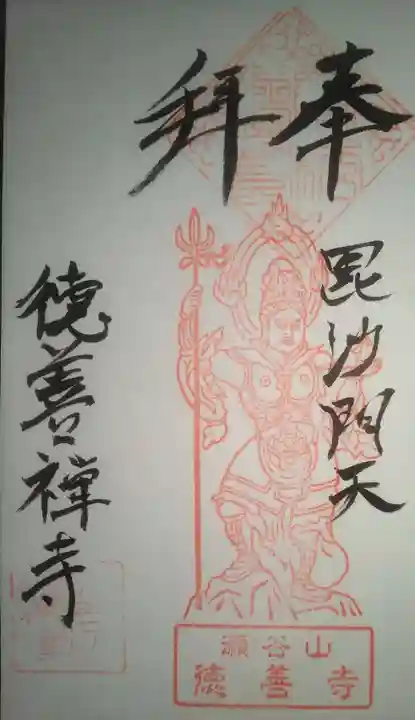 奉拝
毘沙門天
徳善禅寺
瀬谷山
徳善寺